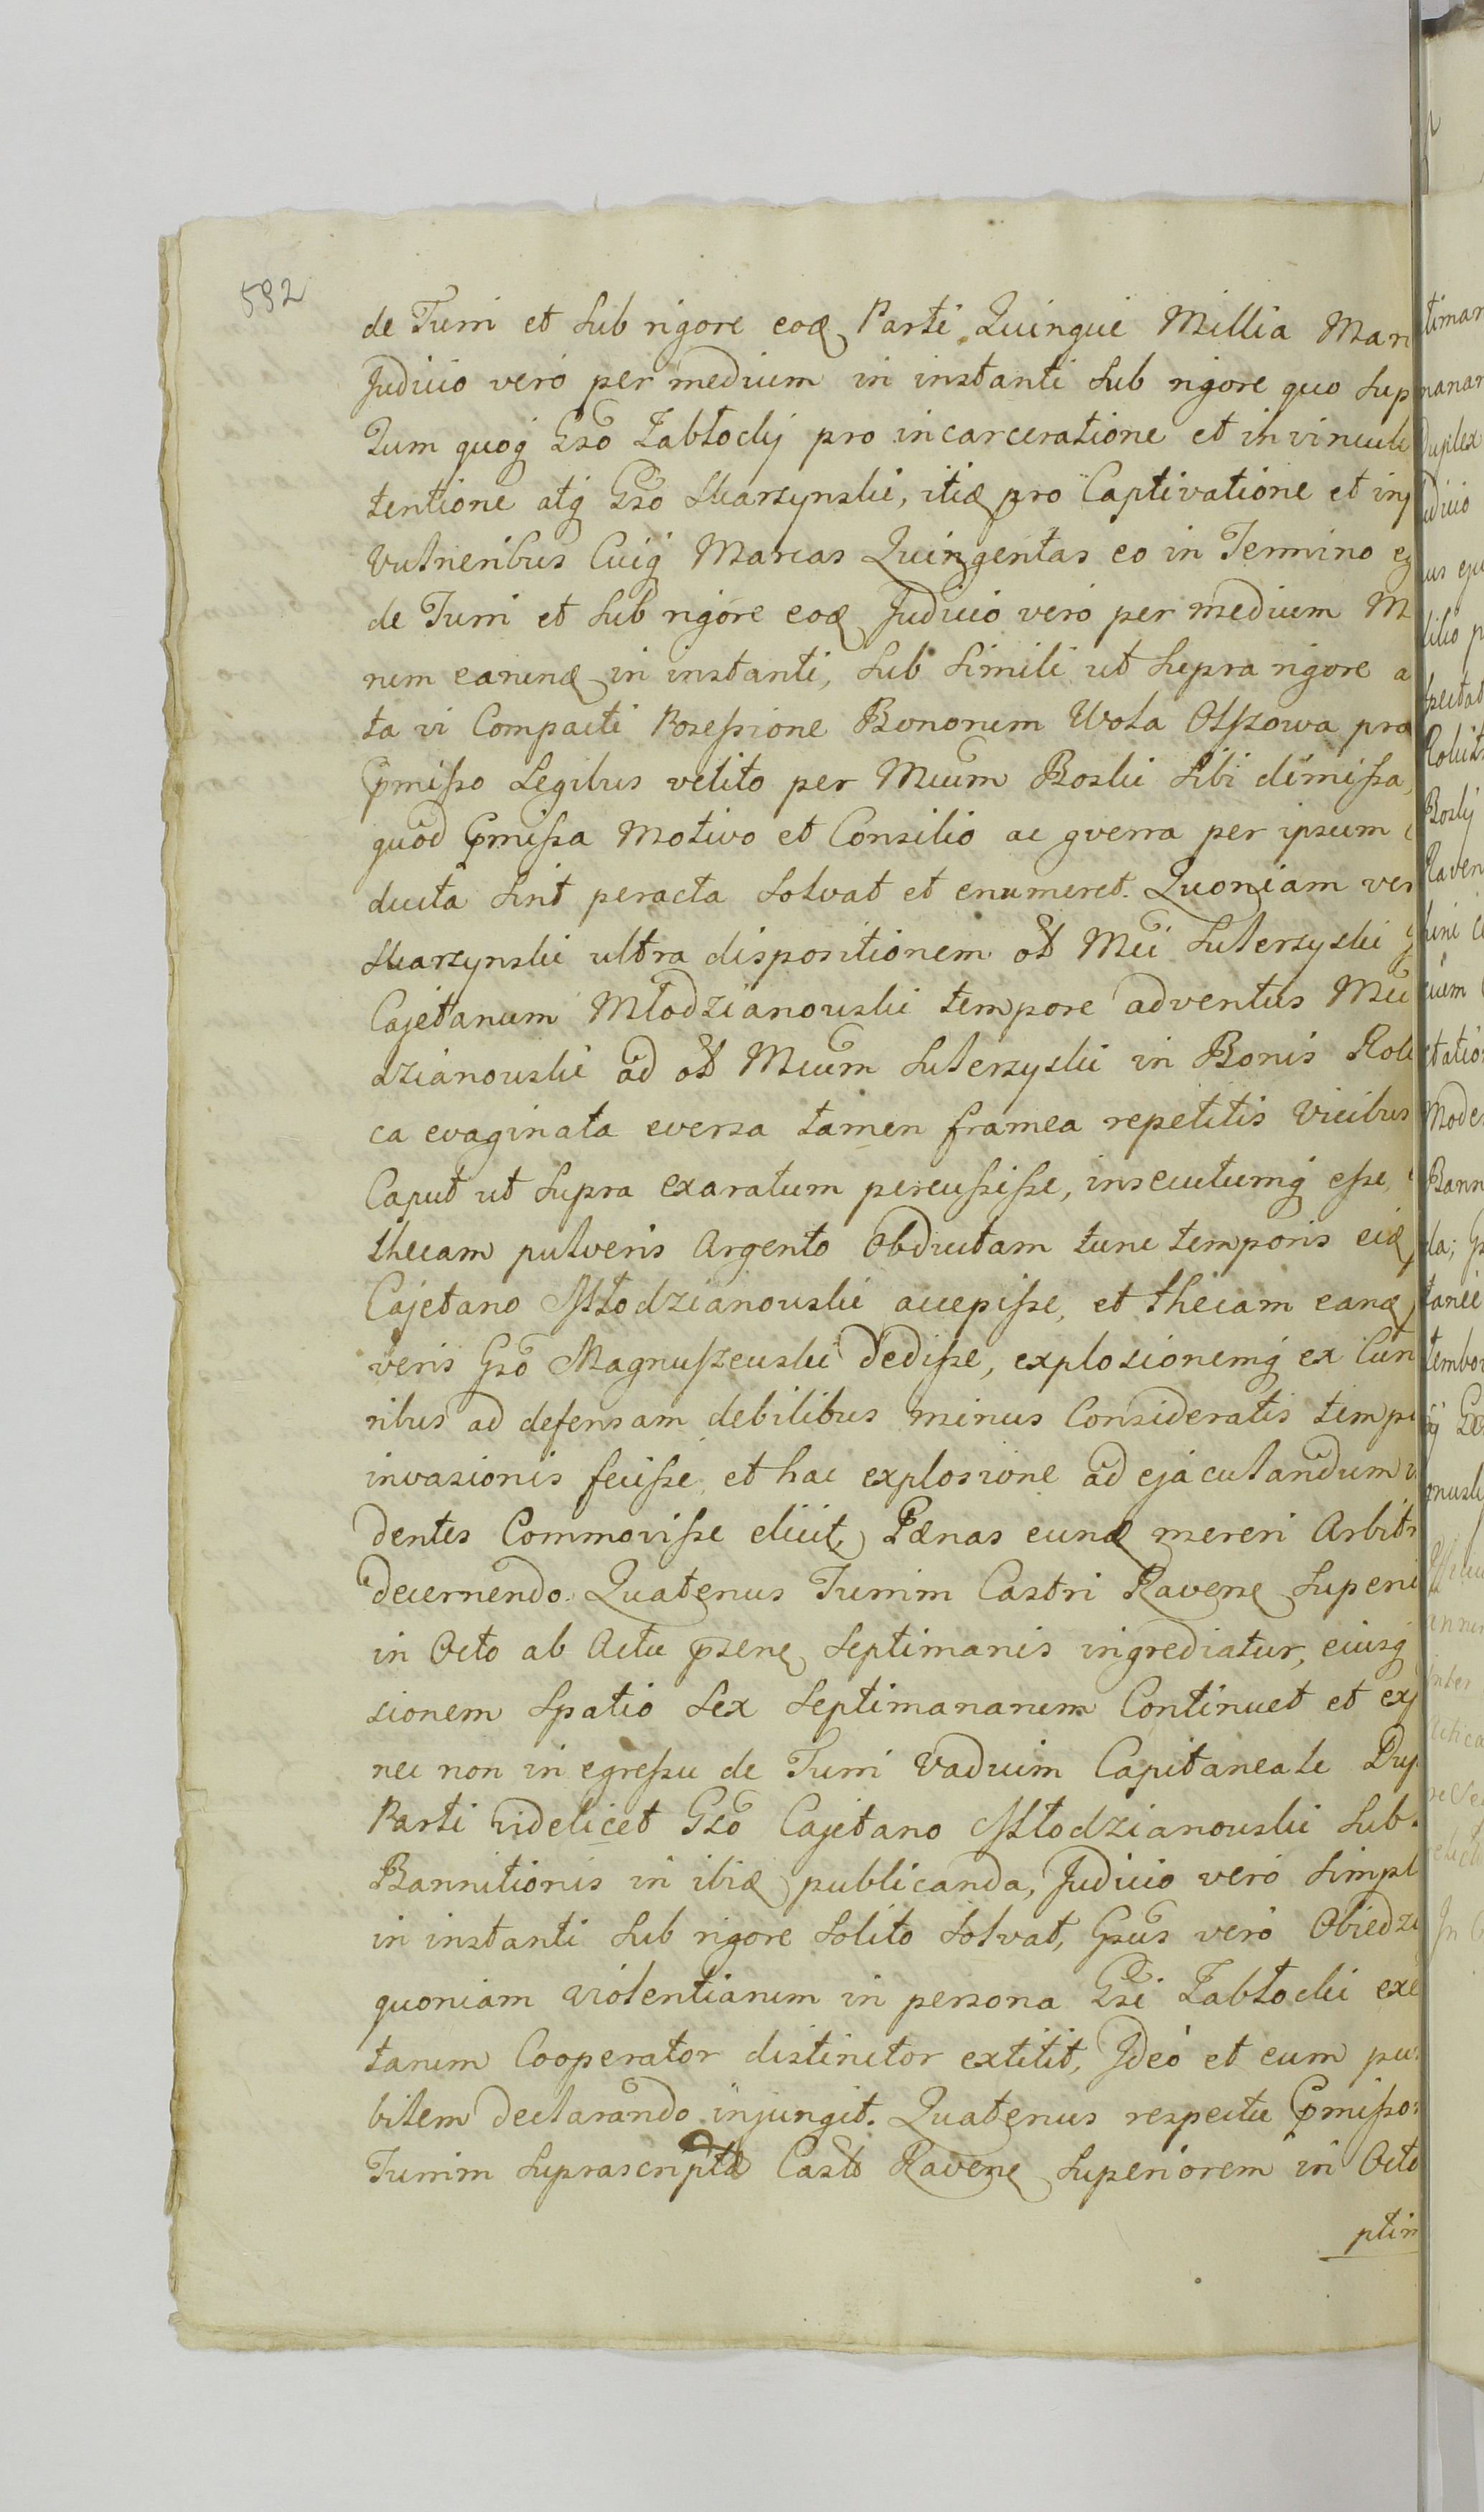 592
de Turri et sub rigore eod Parti Quinque Millia Mar
Judicio vero per medium in instanti sub rigore quo sup
Tum quoq Gso Zabłockij pro incarceratione et in vincul
tentione atq Gso Skarzynski, itid pro Captivatione et in
Vulneribus Cuiq Marcas Quingentas eo in Termino eg
de Turri et sub rigore eod Judicio vero per medium M
rum earund in instanti, sub simili ut supra rigore a
ta vi Compacti Possessione Bonorum Wola Olszowa pra
pmisso Legibus vetito per Mcum Boski sibi dimissa,
quod pmissa Motivo et Consilio ac gverra per ipsum
ducta sint peracta solvat et enumeret. Quoniam ver
Skarzynski ultra dispositionem olt Mci Suterzyski
Cajetanum Młodzianowski tempore adventus Mci
dzianowski ad olt Mcum Suterzyski in Bonis Rok
ca evaginata eversa tamen framea repetitis Vicibus
Caput ut supra exaratum percussisse, insecutumq esse,
thecam pulveris Argento Obductam tunc temporis eid
Cajetano Młodzianowski accepisse, et thecam eand
veris Gso Magnuszewski dedisse, explosionemq ex
ribus ad defensam debilibus minus Consideratis temp
invasionis fecisse et hac explosione ad ejaculandum
dentes Commovisse elicit, Pænas eund mereri Arbitr
decernendo. Quatenus Turrim Castri Ravene Superi
in Octo ab Actu psene Septimanis ingrediatur, eiusq
sionem Spatio Sex Septimanarum Continuet et exp
nec non in egressu de Turri Vadium Capitaneale Dup
Parti videlicet Gso Cajetano Młodzianowski sub
Bannitionis in ibid publicanda, Judicio vero simpl
in instanti sub rigore solito solvat, Gsus vero Obiedzi
quoniam violentiarum in persona Gsi Zabłocki exe
tarum Cooperator distinctor extitit, Ideo et eum pu
bilem declarando injungit. Quatenus respectu pmisso
Turrim suprascripta Cast Ravene Superiorem in Octo
ptim